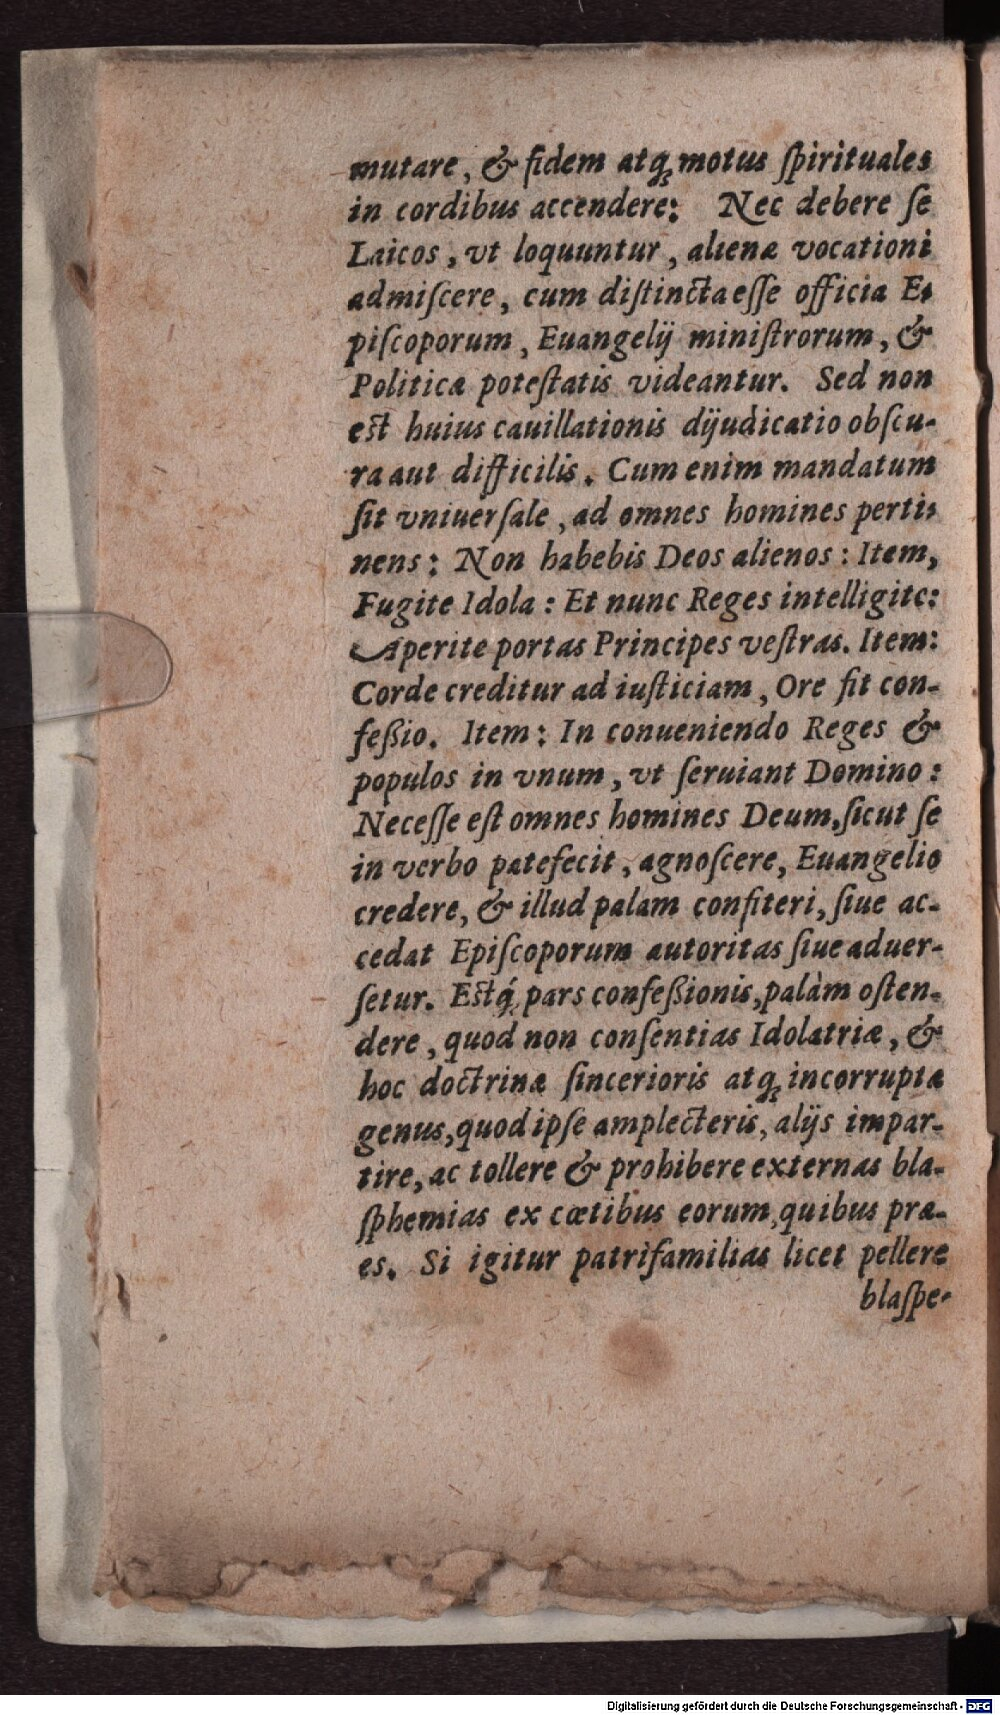 mutare, & fidem atq́; motus ſpirituales
in cordibus accendere: Nec debere ſe
Laicos, vt loquuntur, alienæ vocationi
admiſcere, cum diſtincta eſſe officia E-
piſcoporum, Euangelij miniſtrorum, &
Politicæ poteſtatis videantur. Sed non
eſt huius cauillationis dijudicatio obſcu-
ra aut difficilis. Cum enim mandatum
ſit vniuerſale, ad omnes homines perti-
nens: Non habebis Deos alienos: Item,
Fugite Idola: Et nunc Reges intelligite:
Aperite portas Principes veſtras. Item:
Corde creditur ad iuſticiam, Ore fit con-
feßio. Item: In conueniendo Reges &
populos in vnum, vt ſeruiant Domino:
Neceſſe eſt omnes homines Deum, ſicut ſe
in verbo patefecit, agnoſcere, Euangelio
credere, & illud palam confiteri, ſiue ac-
cedat Epiſcoporum autoritas ſiue aduer-
ſetur. Eſtq́; pars confeßionis, palàm oſten-
dere, quod non conſentias Idolatriæ, &
hoc doctrinæ ſincerioris atq; incorruptæ
genus, quod ipſe amplecteris, alijs impar-
tire, ac tollere & prohibere externas bla-
ſphemias ex cœtibus eorum, quibus præ-
es. Si igitur patrifamilias licet pellere
blaſpe-
Digitalisierung gefördert durch die Deutsche Forschungsgemeinschaft - DFG